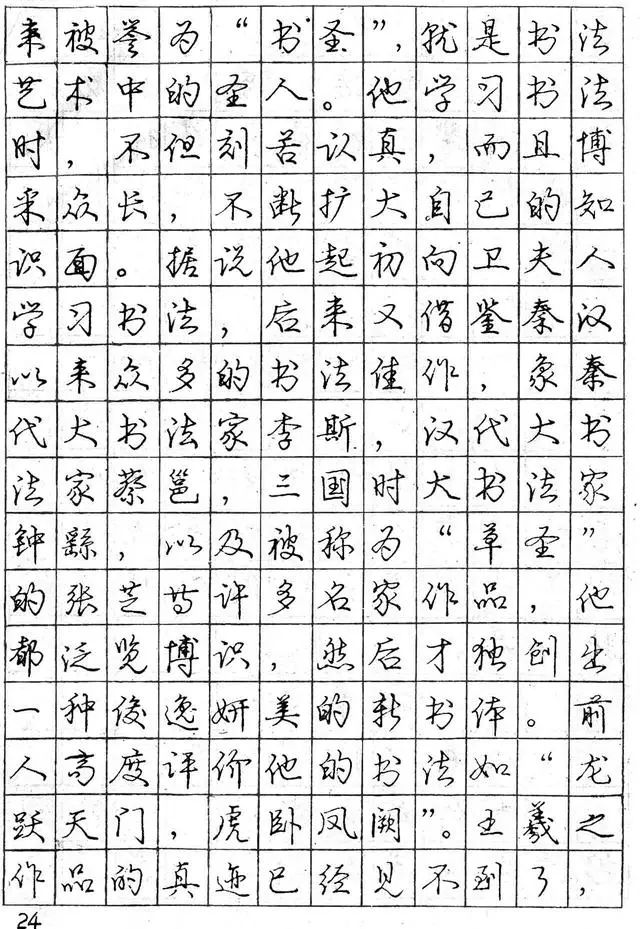 来被誉为“书圣”，就是书法
艺术中的圣人。他学习书法
时，不但刻苦认真，而且博
采众长，不断扩大自己的知
识面。据说他起初向卫夫人
学习书法，后来又借鉴秦汉
以来众多的书法佳作，象秦
代大书法家李斯，汉代大书
法家蔡邕，三国时大书法家
钟繇，以及被称为“草圣”
的张芝等许多名家作品，他
都泛览博识，然后才独创出
一种俊逸妍美的新书体。前
人高度评价他的书法如“龙
跃天门，虎卧凤阙”。王羲之
作品的真迹已经见不到了，
24